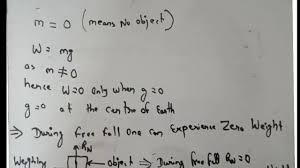 m = 0 (means No object)
W = mg
as m ≠ 0
hence W=0 only when g=0
g=0 at the centre of Earth
⇒ During free fall one can Experience Zero Weight
Weighing object ⇒ During free fall RN=0